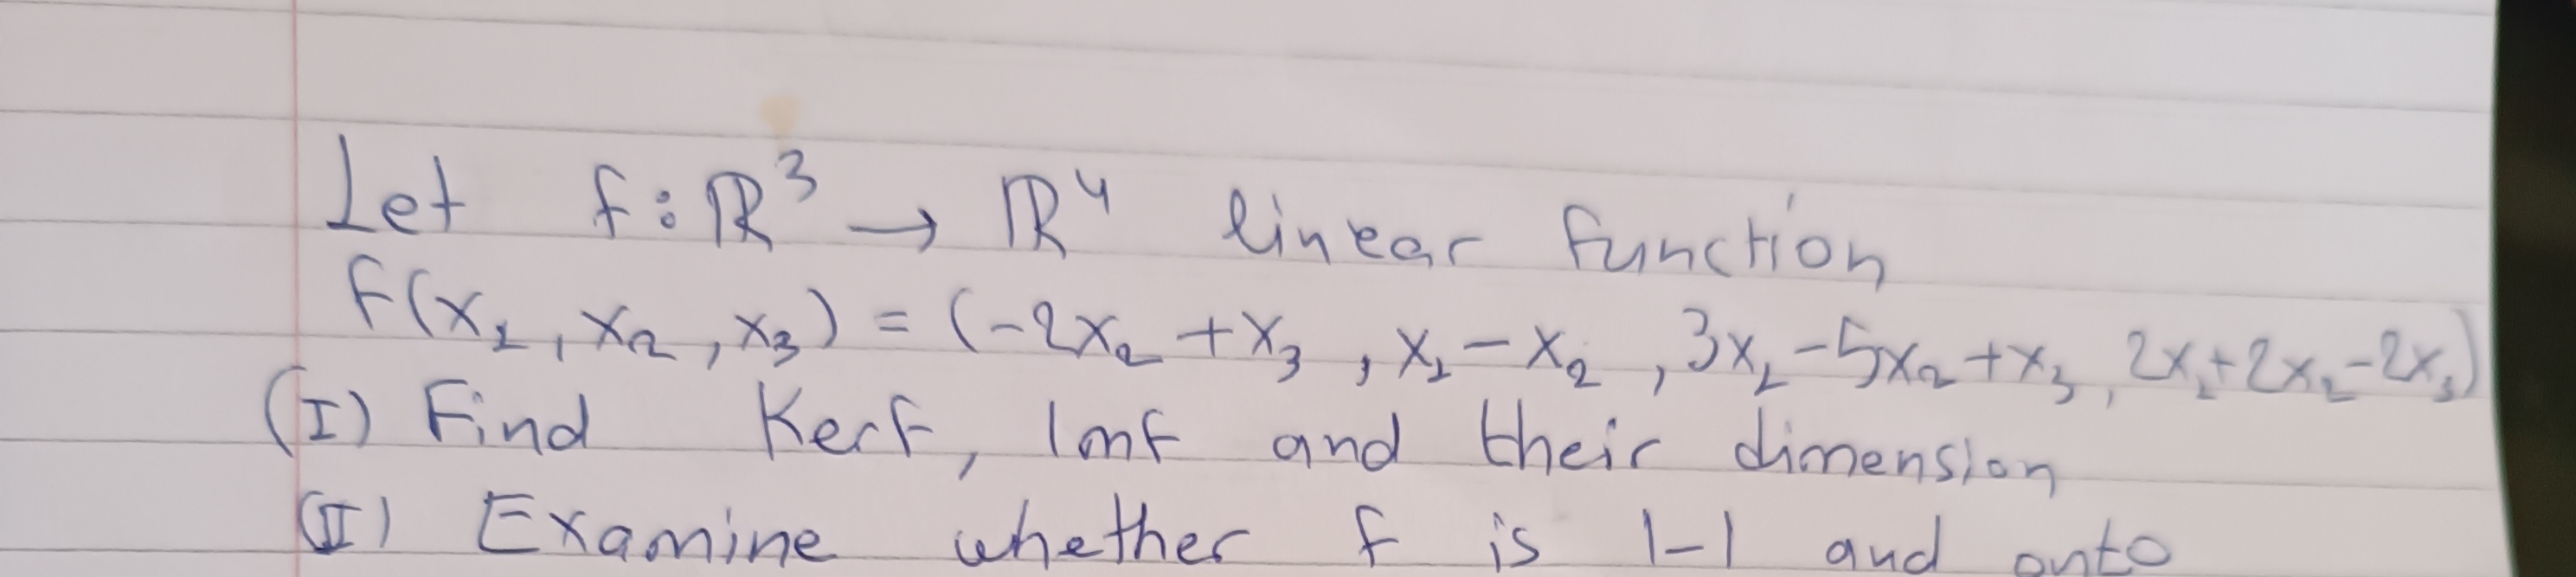 Let f: ℝ³ → ℝ⁴ linear function
f(x₁, x₂, x₃) = (-2x₂ + x₃, x₁ - x₂, 3x₁ - 5x₂ + x₃, 2x₁ + 2x₂ - 2x₃)
(I) Find Kerf, Imf and their dimension
(II) Examine whether f is 1-1 and onto